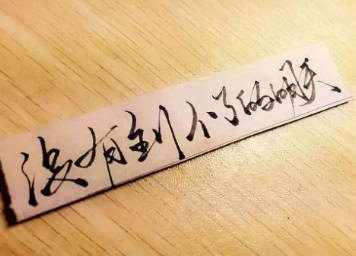 没有到不了的明天